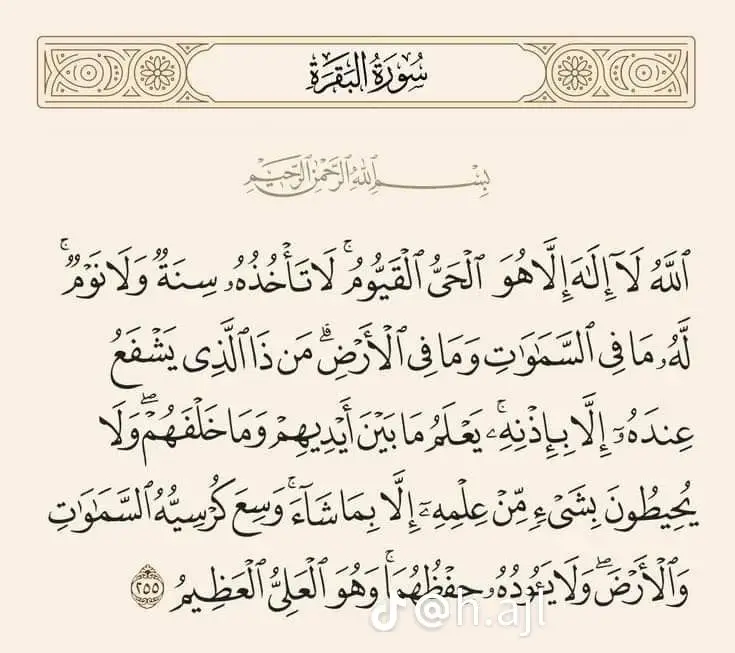 سُورَةُ البَقَرَةِ
بِسْمِ ٱللَّهِ ٱلرَّحْمَٰنِ ٱلرَّحِيمِ
ٱللَّهُ لَآ إِلَٰهَ إِلَّا هُوَ ٱلْحَىُّ ٱلْقَيُّومُ ۚ لَا تَأْخُذُهُۥ سِنَةٌ وَلَا نَوْمٌ ۚ
لَّهُۥ مَا فِى ٱلسَّمَٰوَٰتِ وَمَا فِى ٱلْأَرْضِ ۗ مَن ذَا ٱلَّذِى يَشْفَعُ
عِندَهُۥٓ إِلَّا بِإِذْنِهِۦ ۚ يَعْلَمُ مَا بَيْنَ أَيْدِيهِمْ وَمَا خَلْفَهُمْ ۖ وَلَا
يُحِيطُونَ بِشَىْءٍ مِّنْ عِلْمِهِۦٓ إِلَّا بِمَا شَآءَ ۚ وَسِعَ كُرْسِيُّهُ ٱلسَّمَٰوَٰتِ
وَٱلْأَرْضَ ۖ وَلَا يَـُٔودُهُۥ حِفْظُهُمَا ۚ وَهُوَ ٱلْعَلِىُّ ٱلْعَظِيمُ ٢٥٥
@h.ajl